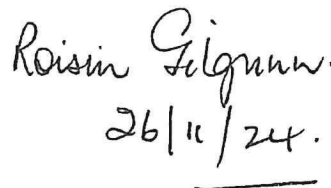 Roisin Gilgunn.
26/11/24.